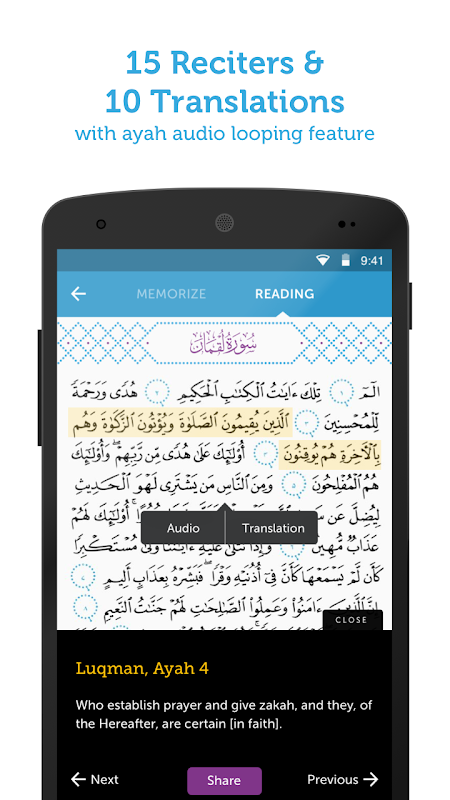 15 Reciters &
10 Translations
with ayah audio looping feature
9:41
MEMORIZE READING
سُورَةُ لُقْمَان
الٓمٓ ١ تِلْكَ ءَايَٰتُ ٱلْكِتَٰبِ ٱلْحَكِيمِ ٢ هُدًى وَرَحْمَةً
لِّلْمُحْسِنِينَ ٣ ٱلَّذِينَ يُقِيمُونَ ٱلصَّلَوٰةَ وَيُؤْتُونَ ٱلزَّكَوٰةَ وَهُم
بِٱلْءَاخِرَةِ هُمْ يُوقِنُونَ ٤ أُو۟لَٰٓئِكَ عَلَىٰ هُدًى مِّن رَّبِّهِمْ ۖ وَأُو۟لَٰٓئِكَ
هُمُ ٱلْمُفْلِحُونَ ٥ وَمِنَ ٱلنَّاسِ مَن يَشْتَرِى لَهْوَ ٱلْحَدِيثِ
لِيُضِلَّ عَن
أُو۟لَٰٓئِكَ لَهُمْ
Audio Translation
عَذَابٌ مُّهِينٌ ٦ وَإِذَا تُتْلَىٰ عَلَيْهِ ءَايَٰتُنَا وَلَّىٰ مُسْتَكْبِرًا
كَأَن لَّمْ يَسْمَعْهَا كَأَنَّ فِىٓ أُذُنَيْهِ وَقْرًا ۖ فَبَشِّرْهُ بِعَذَابٍ أَلِيمٍ
٧ إِنَّ ٱلَّذِينَ ءَامَنُوا۟ وَعَمِلُوا۟ ٱلصَّٰلِحَٰتِ لَهُمْ جَنَّٰتُ ٱلنَّعِيمِ
٨
CLOSE
Luqman, Ayah 4
Who establish prayer and give zakah, and they, of
the Hereafter, are certain [in faith].
Next Share Previous